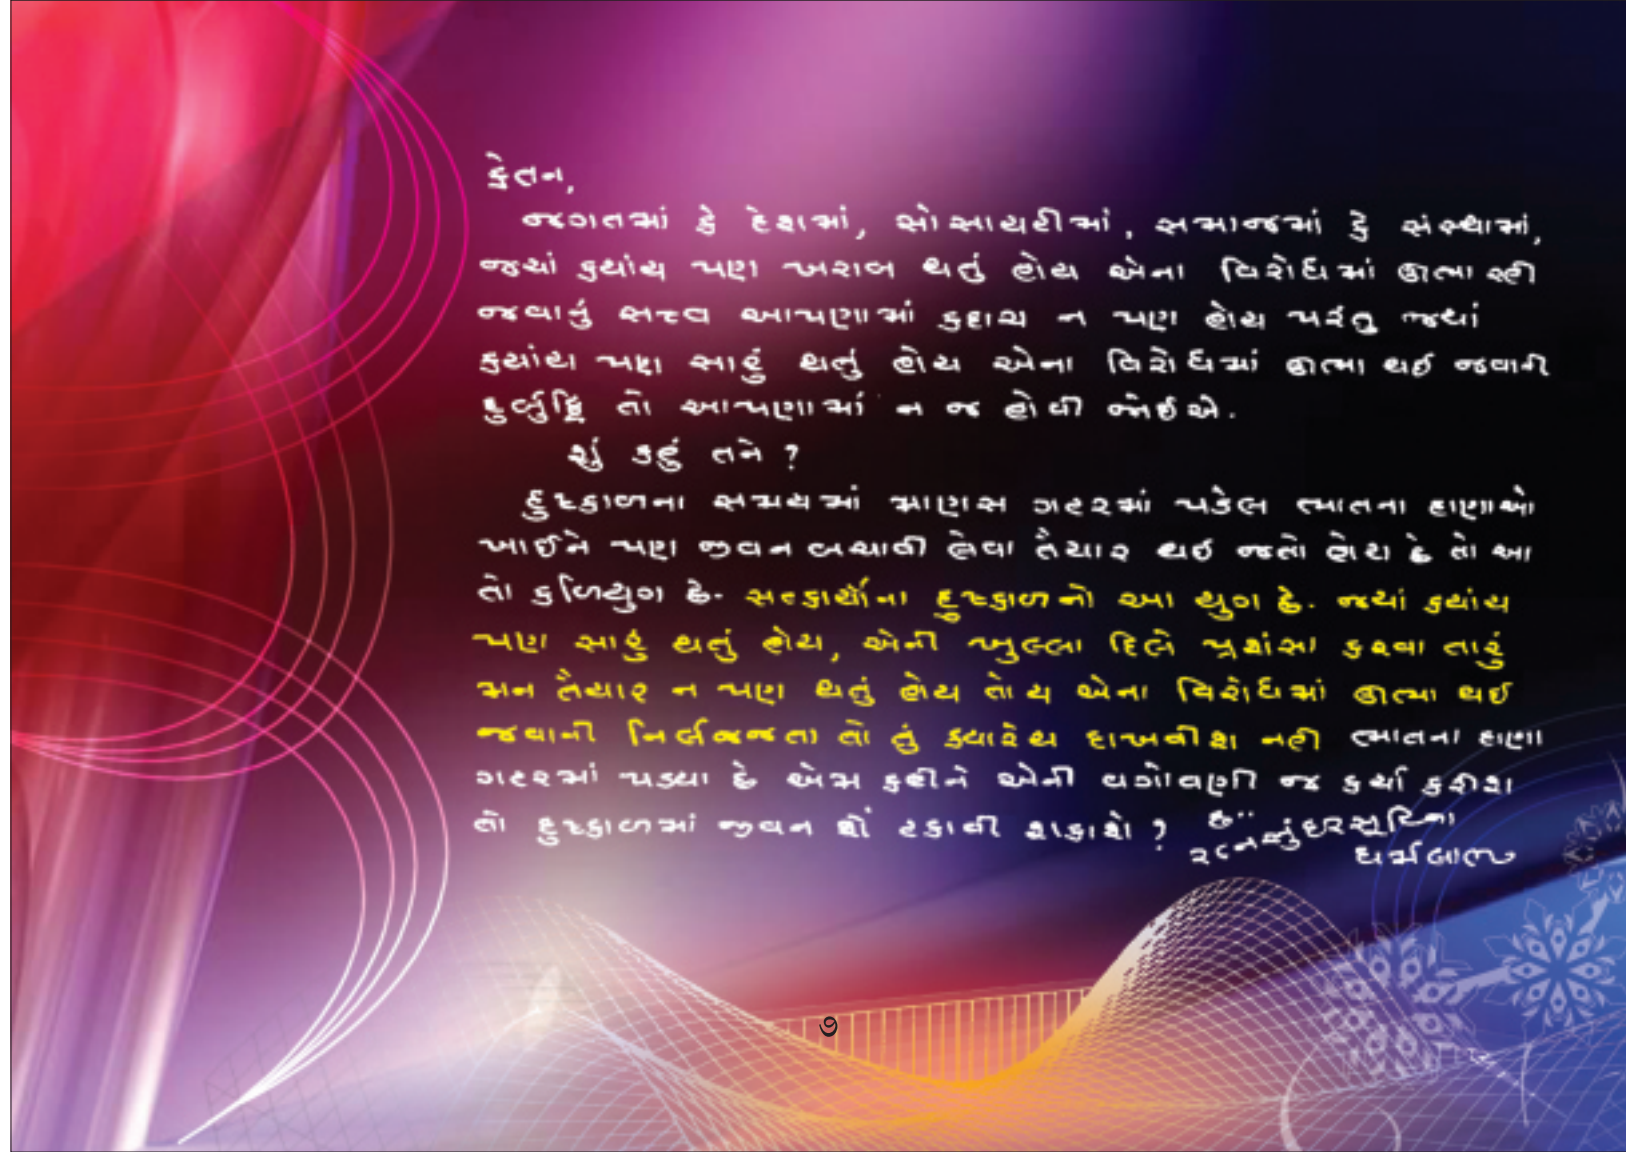 કેતન,
જગતમાં કે દેશમાં, સોસાયટીમાં, સમાજમાં કે સંસ્થામાં,
જ્યાં ક્યાંય પણ ખરાબ થતું હોય એના વિરોધમાં ઊભા રહી
જવાનું સત્ત્વ આપણામાં કદાચ ન પણ હોય પરંતુ જ્યાં
ક્યાંય પણ સારું થતું હોય એના વિરોધમાં ઊભા થઈ જવાની
દુર્બુદ્ધિ તો આપણામાં ન જ હોવી જોઈએ.
શું કહું તને ?
દુષ્કાળના સમયમાં માણસ ગટરમાં પડેલ ભાતના દાણાઓ
ખાઈને પણ જીવન બચાવી લેવા તૈયાર થઈ જતો હોય છે તો આ
તો કળિયુગ છે. સત્કાર્યોના દુષ્કાળનો આ યુગ છે. જ્યાં ક્યાંય
પણ સારું થતું હોય, એની ખુલ્લા દિલે પ્રશંસા કરવા તારું
મન તૈયાર ન પણ થતું હોય તોય એના વિરોધમાં ઊભા થઈ
જવાની નિર્લજ્જતા તો તું ક્યારેય દાખવીશ નહીં ભાતના દાણા
ગટરમાં પડ્યા છે એમ કહીને એની વગોવણી જ કર્યા કરીશ
તો દુષ્કાળમાં જીવન શેં ટકાવી શકાશે ?
રત્નસુંદરસૂરિના
ધર્મલાભ
૭